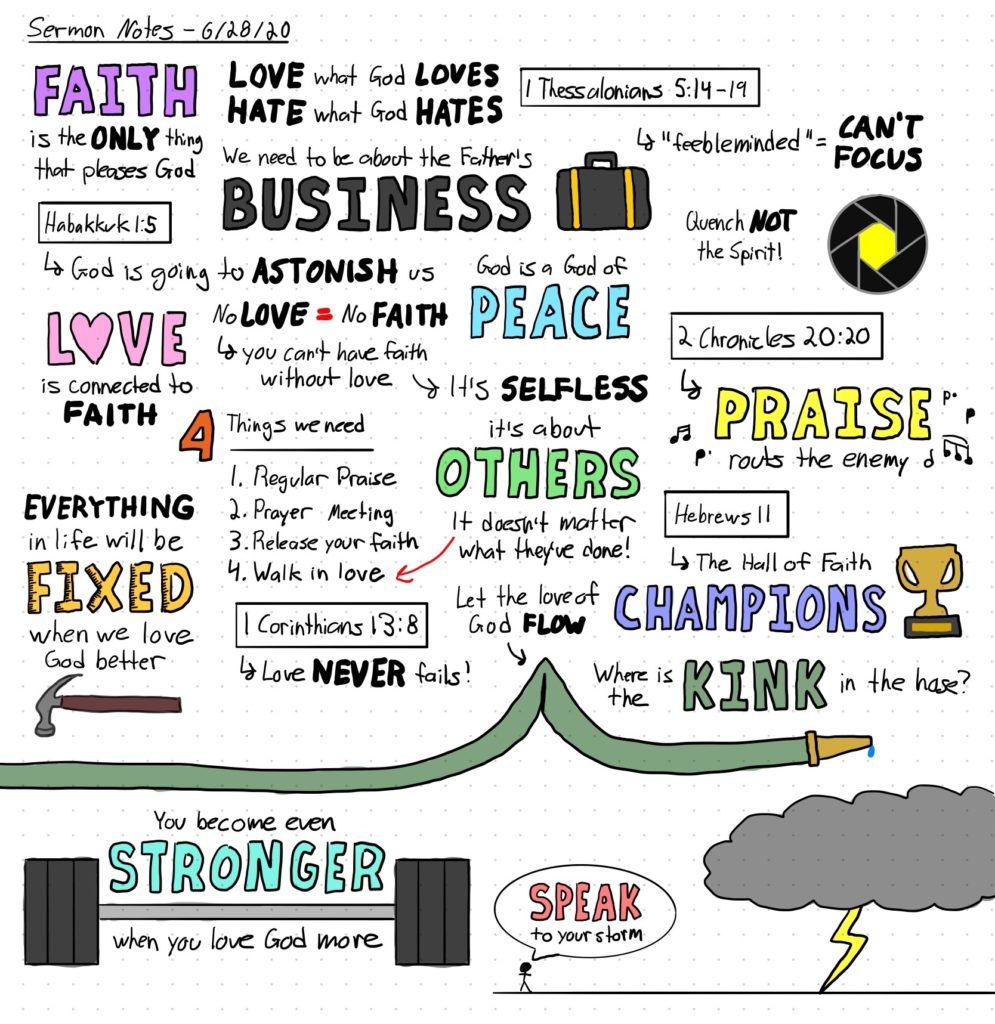 Sermon Notes - 6/28/20
FAITH
is the ONLY thing
that pleases God
LOVE what God LOVES
HATE what God HATES
1 Thessalonians 5:14-19
↳ "feebleminded" = CAN'T
FOCUS
We need to be about the Father's
BUSINESS
Quench NOT
the Spirit!
Habakkuk 1:5
↳ God is going to ASTONISH us
God is a God of
PEACE
LOVE
is connected to
FAITH
No LOVE = No FAITH
↳ you can't have faith
without love
2 Chronicles 20:20
↳ PRAISE
routs the enemy
↳ It's SELFLESS
it's about
OTHERS
It doesn't matter
what they've done!
4 Things we need
1. Regular Praise
2. Prayer Meeting
3. Release your faith
4. Walk in love
EVERYTHING
in life will be
FIXED
when we love
God better
Hebrews 11
↳ The Hall of Faith
CHAMPIONS
1 Corinthians 13:8
↳ Love NEVER fails!
Let the love of
God FLOW
Where is
the KINK in the hose?
You become even
STRONGER
when you love God more
SPEAK
to your storm